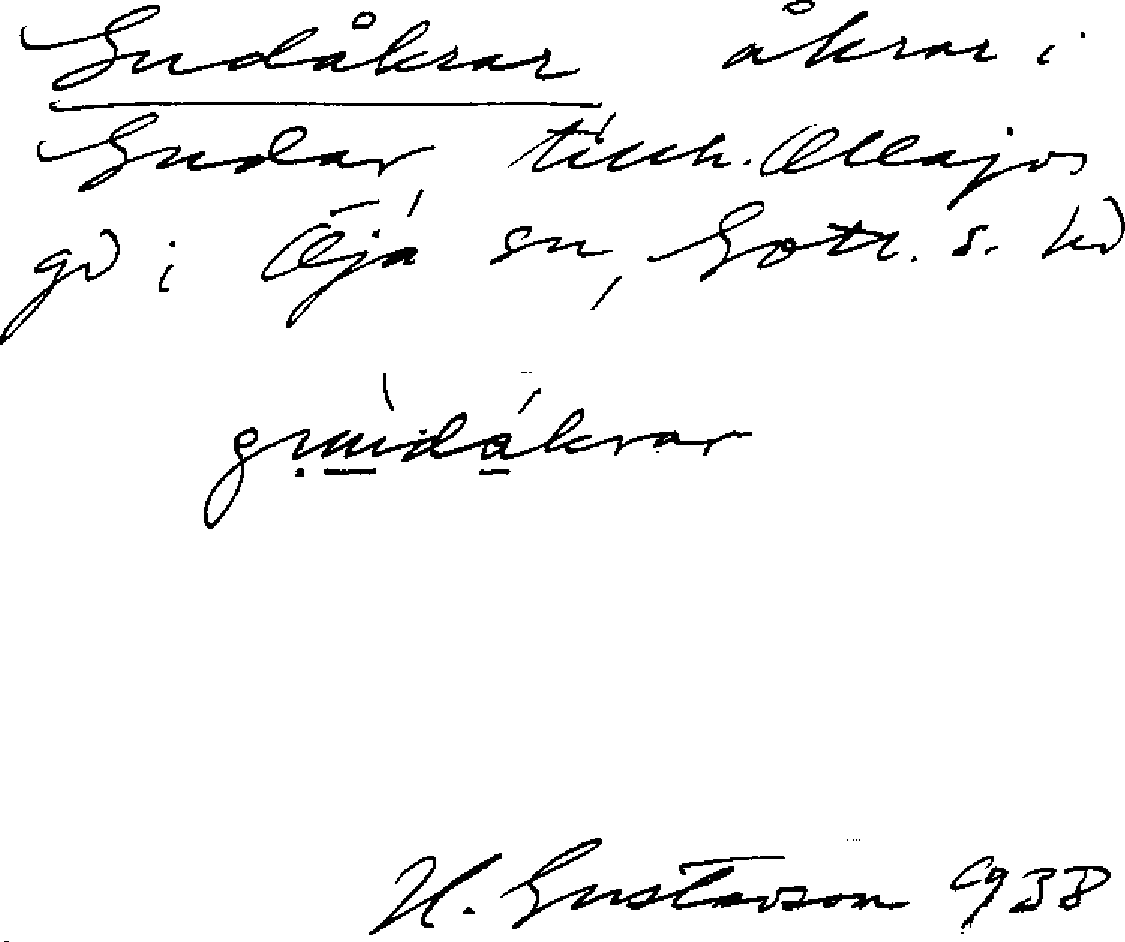 Gudåkrar åkrar i
Gudar tillh. Ollajvs
gd i Öja sn, Gotl. s. hd
H. Gustavson 1938